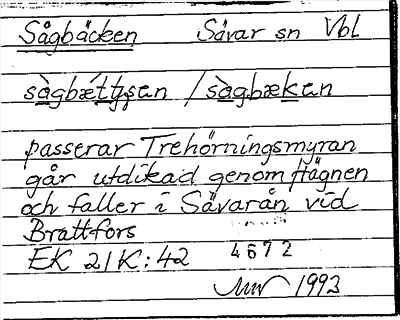 Sågbäcken Sävar sn Vbl
sàgbǽttʃan / sàgbækan
passerar Trehörningsmyran
går utdikad genom
och faller i Sävarån vid
Brattfors
EK 21K:42 4672
1993